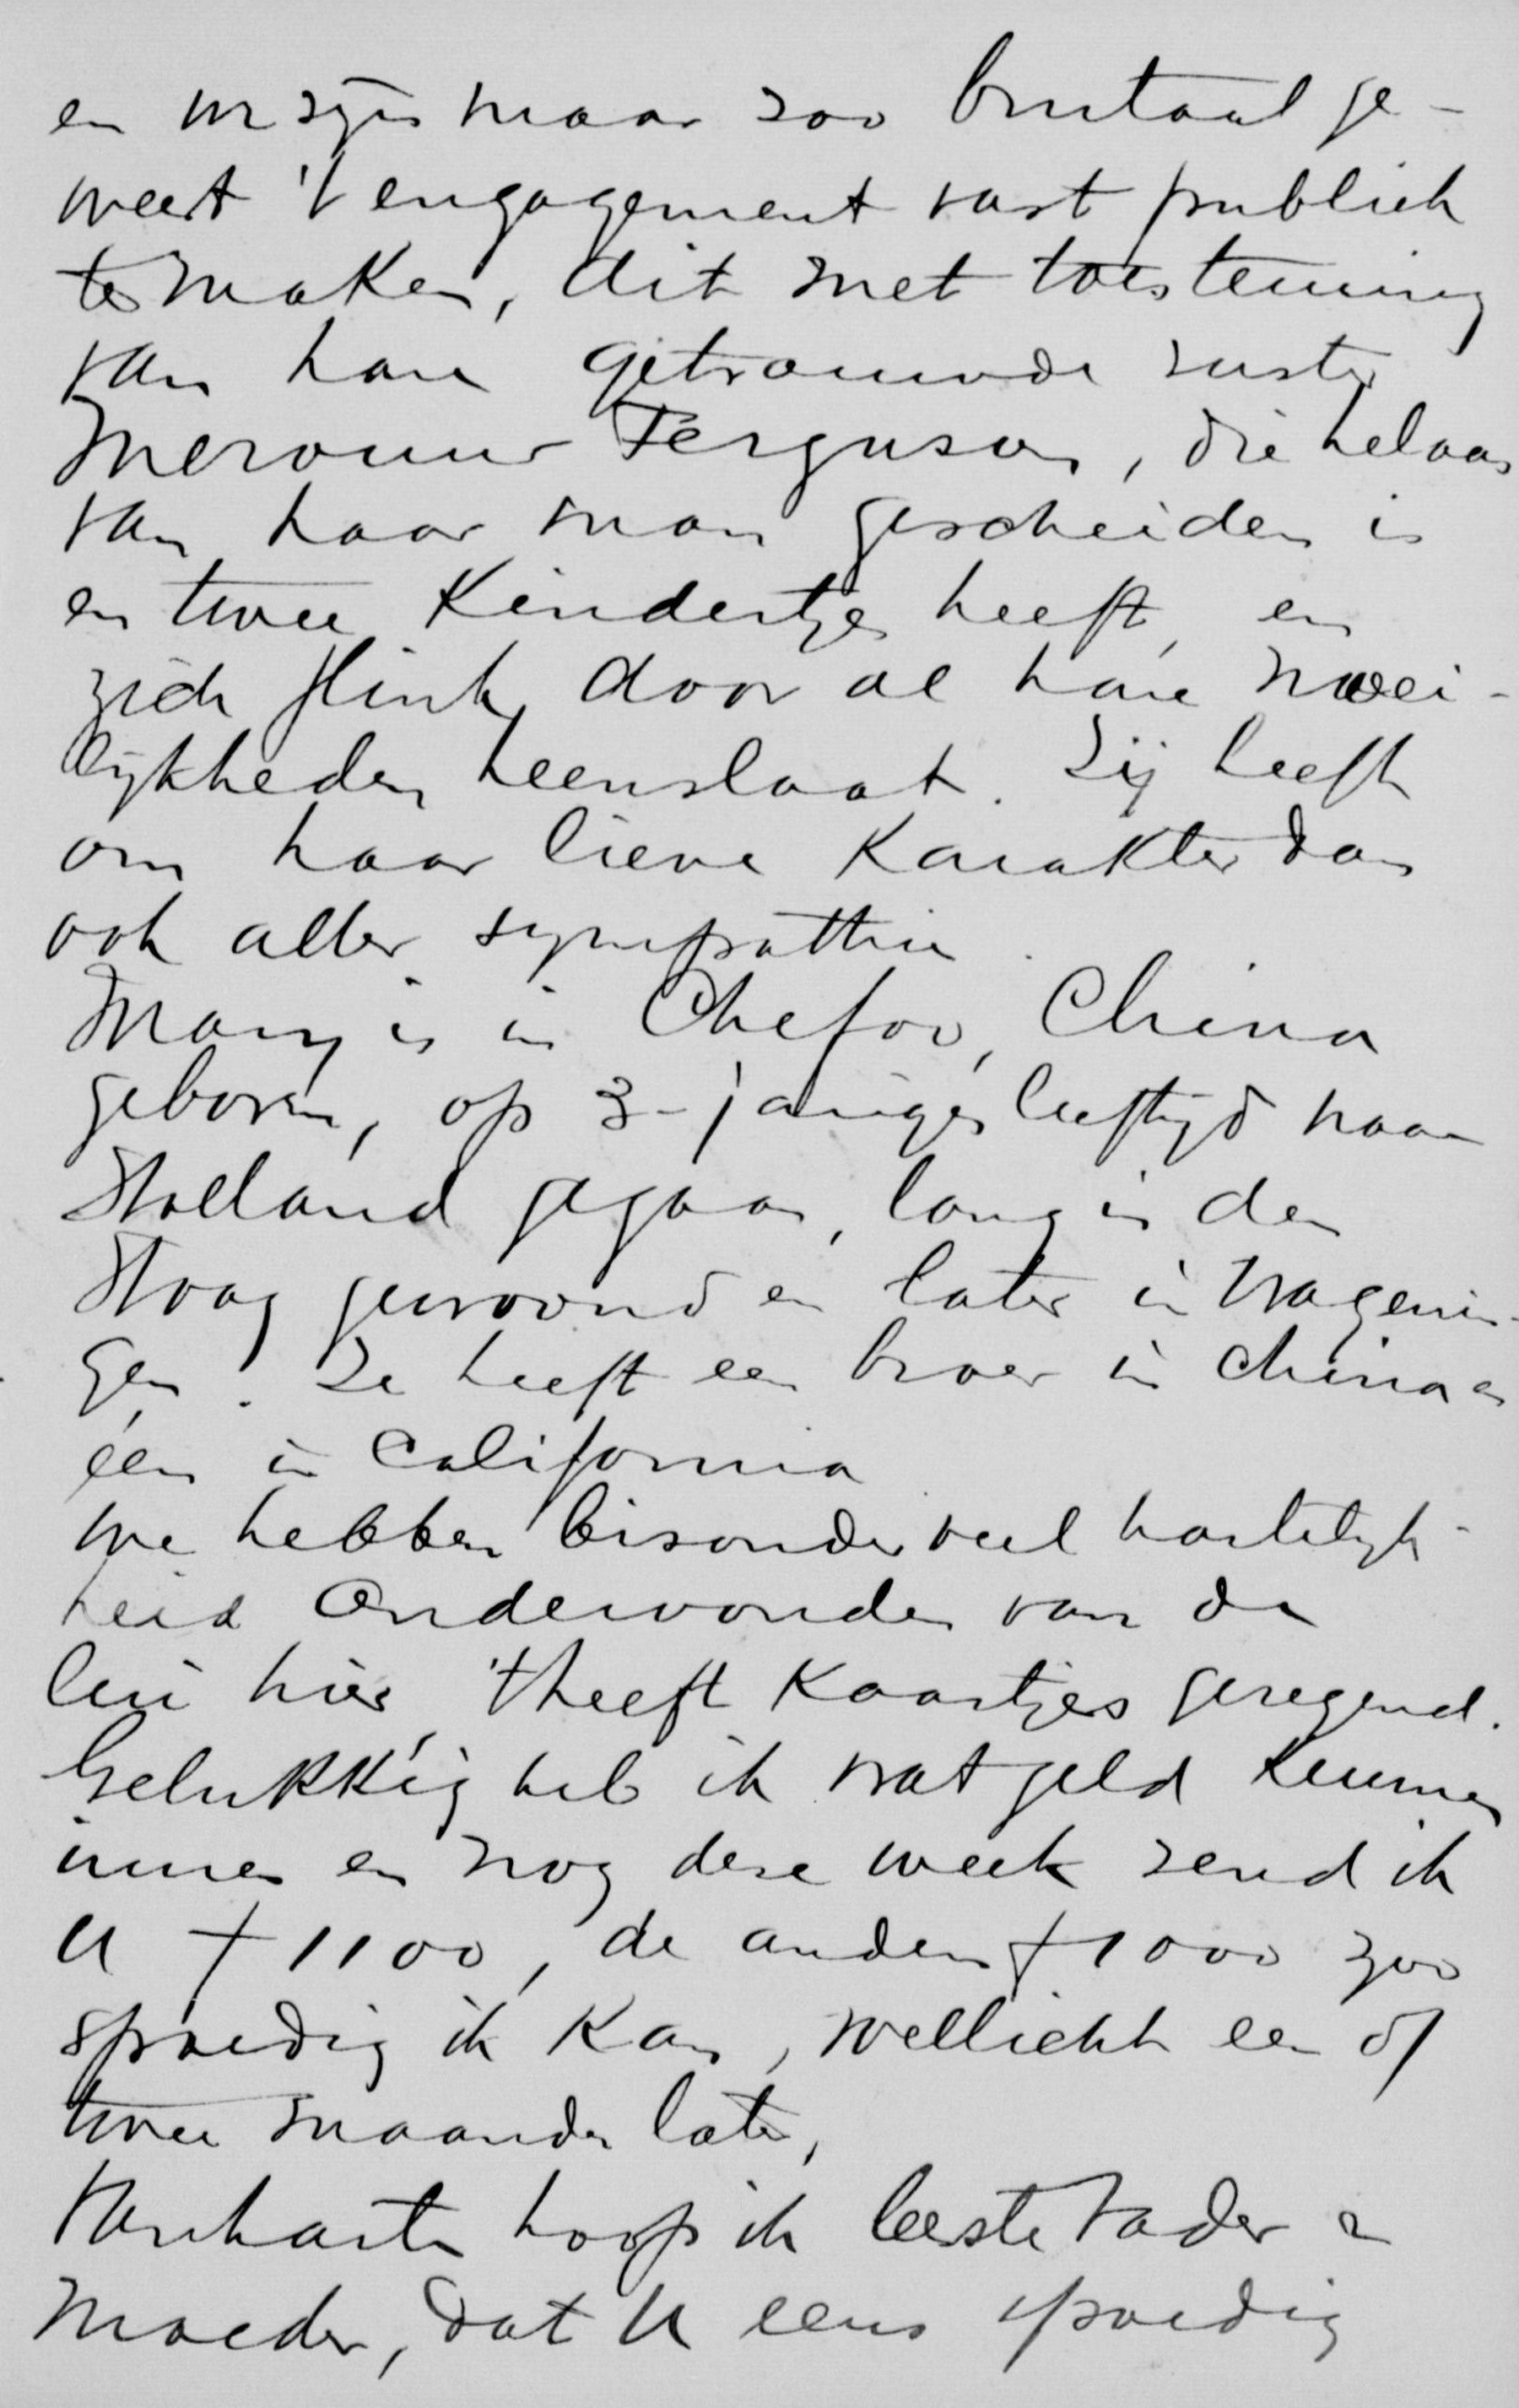 en we zijn maar zoo brutaal ge-
weest 't engagement vast publiek
te maken, dit met toestemming
van hare getrouwde zuster
Mevrouw Ferguson, die helaas
van haar man gescheiden is
en twee kindertjes heeft, en
zich flink door al hare moei-
lijkheden heenslaat. Zij heeft
om haar lieve karakter dan
ook aller sympathie.
Mary is in Chefoo, China
geboren, op 3-jarigen leeftijd naar
Holland gegaan, lang in den
Haag gewoond en later in Wagenin-
gen. Ze heeft een broer in China en
één in California
We hebben bisonder veel hartelijk-
heid ondervonden van de
lui hier, 't heeft kaartjes geregend.
Gelukkig heb ik wat geld kunnen
innen en nog deze week zend ik
U ƒ 1100, de andere ƒ 1000 zoo
spoedig ik kan, wellicht een of
twee maanden later,
Van harte hoop ik beste Vader en
Moeder, dat U eens spoedig